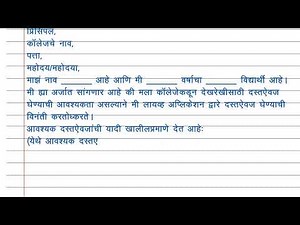 प्रिंसिपल,
कॉलेजचे नाव,
पत्ता,
महोदय/महोदया,
माझं नाव _______ आहे आणि मी _______ वर्षाचा _______ विद्यार्थी आहे।
मी ह्या अर्जात सांगणार आहे की मला कॉलेजेकडून देखरेखीसाठी दस्तऐवज
घेण्याची आवश्यकता असल्याने मी लायव्ह अप्लिकेशन द्वारे दस्तऐवज घेण्याची
विनंती करतोय/करते।
आवश्यक दस्तऐवजांची यादी खालीलप्रमाणे देत आहे:
(येथे आवश्यक दस्तए